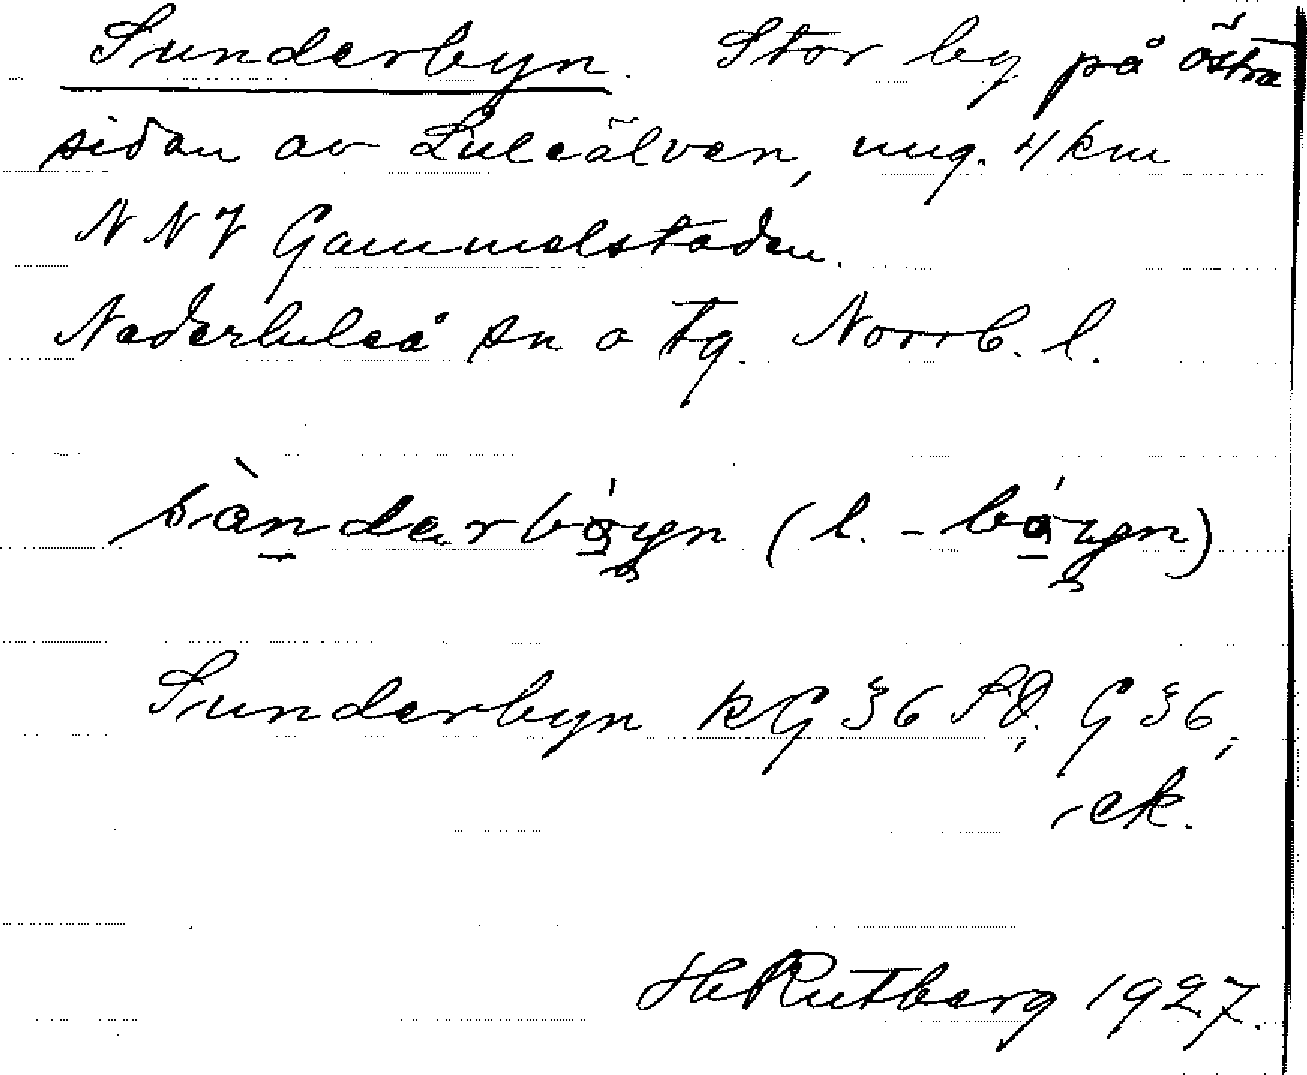 Sunderbyn. Stor by på östra
sidan av Luleälven, ung. 4 km
NNV Gammelstaden.
Nederluleå sn o tg. Norrb. l.
(l. -
Sunderbyn kG 36 SO, G 36,
ek.
H Rutberg 1927.